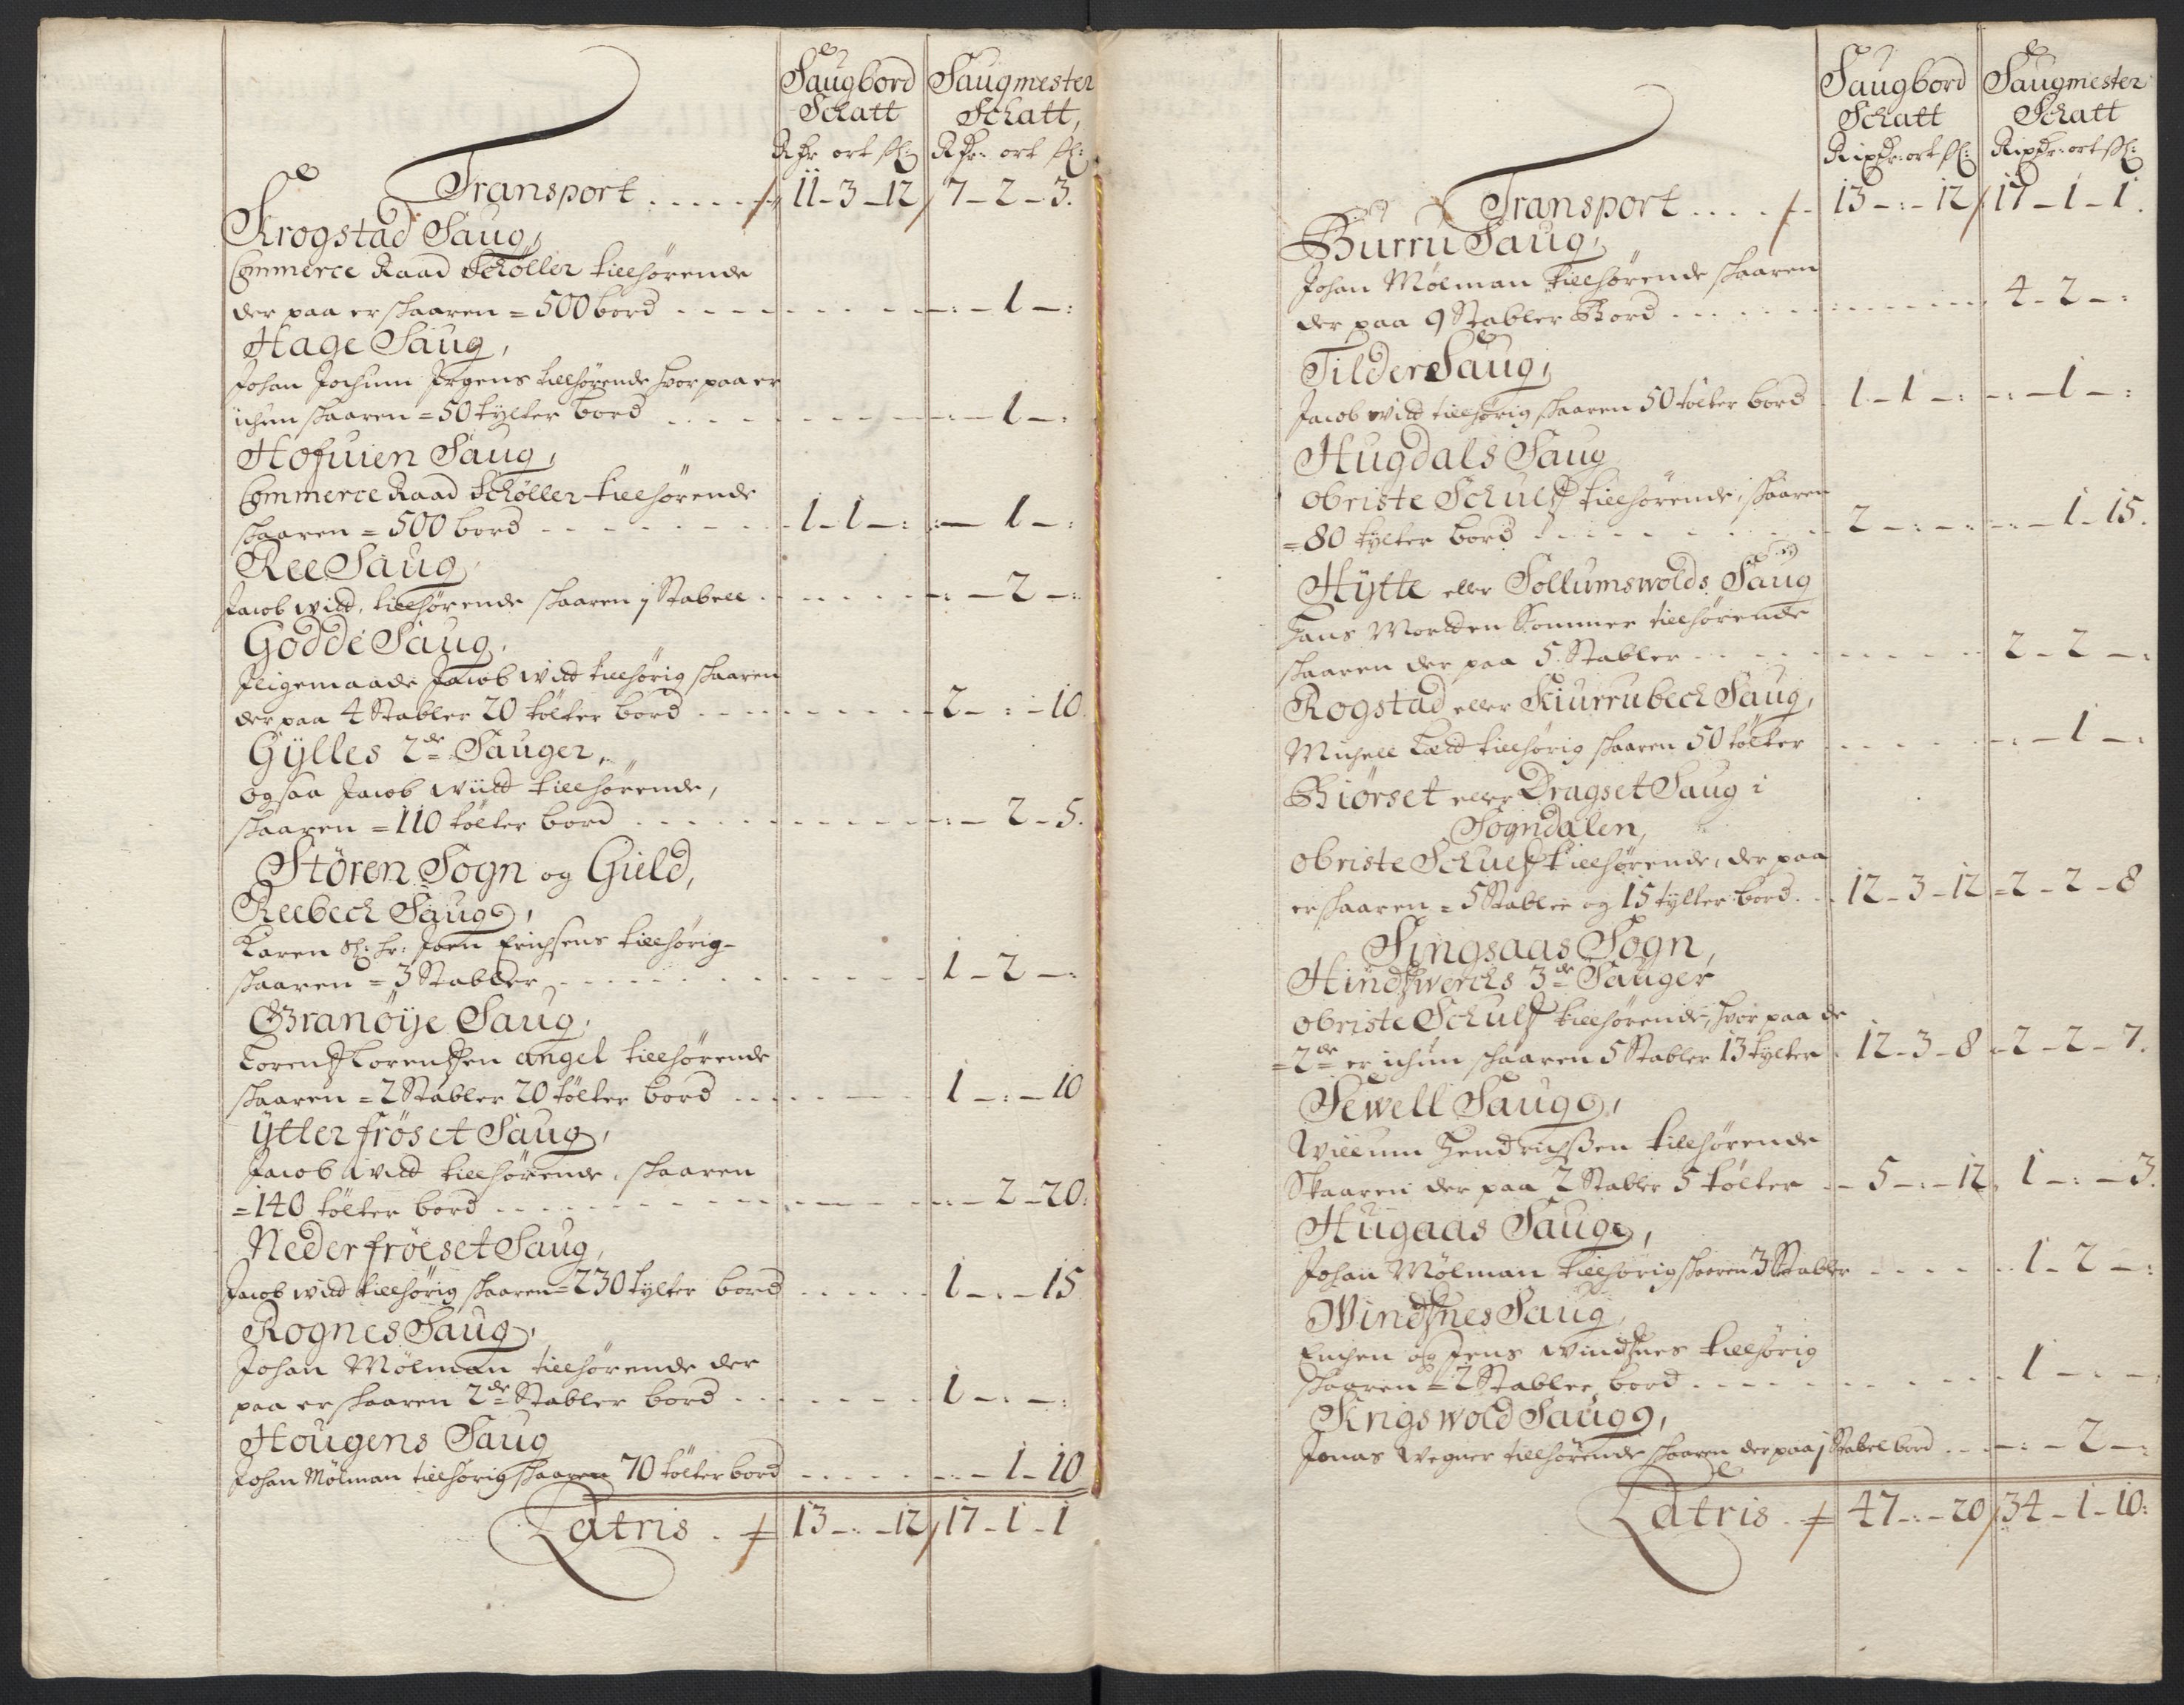 Saugbord Saugmester
Schatt Schatt,
Rdr ort sk: Rdr: ort sk:
Transport . . . . . . 11 - 3 - 12 7 - 2 - 3.
Krogstad Saug,
Commerce Raad Schøller tillhørende
der paa er skaaren = 500 bord . . . - : - 1 - :
Hage Saug,
Johan Jochum Jrgens tillhørende hvor paa er
ichun skaaren = 50 tylter bord - : - 1 - :
Hofuien Saug,
Commerce Raad Schøller tillhørende
skaaren = 500 bord - - - 1 - 1 - : - : - 1 - :
Ree Saug,
Jacob Widd, tillhørende skaaren j Stabell . - : - 2 - :
Godde Saug,
Jligemaade Jacob Widd tillhørig skaaren
der paa 4 Stabler 20 tolter bord . . . 2 - : - 10.
Gylles 2de Sauger,
ogsaa Jacob Widd tillhørende,
skaaren = 110 tolter bord . . . - : - 2 - 5.
Stören Sogn og Gield,
Reebech Saugg,
Karen Sl: hr: Joen Erichsens tillhørig
skaaren = 3 Stabler . . . 1 - 2 - :
Granöÿe Saug,
Lorentz Lorentzen angel tillhørende
skaaren = 2 Stabler 20 tolter bord . . . 1 - : - 10
Ytter fröset Saug,
Jacob Widd tillhørende, skaaren
= 140 tolter bord . . . - : - 2 - 20.
Neder fröeset Saug,
Jacob Widd tillhørig skaaren = 230 tylter bord . . . 1 - : - 15
Rognes Saug,
Johan Mølman tillhørende der
paa er skaaren 2de Stabler bord . . . 1 - : - :
Hougens Saug
Johan Mølman tillhørig skaaren 70 tolter bord . . . - : - 1 - 10
Latris . 13 - : - 12 17 - 1 - 1
Saugbord Saugmester
Schatt Schatt
Rixdr: ort sk: Rixdr: ort sk:
Transport . . . . 13 - : - 12 17 - 1 - 1.
Burru Saug,
Johan Mølman tillhørende skaaren
der paa 9 Stabler Bord . . . 4 - 2 - :
Tilder Saug,
Jacob Widd tillhørig skaaren 50 tolter bord 1 - 1 - : - : - 1 - :
Hugdals Saug
Obriste Schultz tillhørende, skaaren
= 80 tylter bord . . . 2 - : - : - : - 1 - 15.
Hytte eller Sollumswolds Saug
Hans Skommer tillhørende
skaaren der paa 5 Stabler . . . 2 - 2 - :
Rogstad eller Kiurrubech Saug,
Michell tillhørig skaaren 50 tolter . . . - : - 1 - :
Biörset eller Dragset Saug i
Sogndalen,
Obriste Schultz tillhørende, der paa
er skaaren = 5 Stabler og 15 tylter bord . . 12 - 3 - 12 = 2 - 2 - 8
Singsaas Sogn,
Hindtzwerchs 3de Sauger
Obriste Schultz tillhørende, hvor paa de
= 2de er ichun skaaren 5 Stabler 13 tylter . 12 - 3 - 8 - 2 - 2 - 7.
Sewell Saugg,
Willum Hendrichßen tillhørende
Skaaren der paa 2 Stabler 5 tolter - 5 - : - 12. 1 - : - 3.
Hugaas Saugg,
Johan Mølman tillhørig skaaren 3 Stabler . . . 1 - 2 - :
Windtznes Saug,
Enchen og Jens Windtznes tillhørig
skaaren = 2 Stabler bord . . . 1 - : - :
Krigswold Saugg,
Jonas Wegner tillhørende skaaren der paa j Stabel bord . . . - : - 2 - :
Latris . 47 - : - 20 34 - 1 - 10: